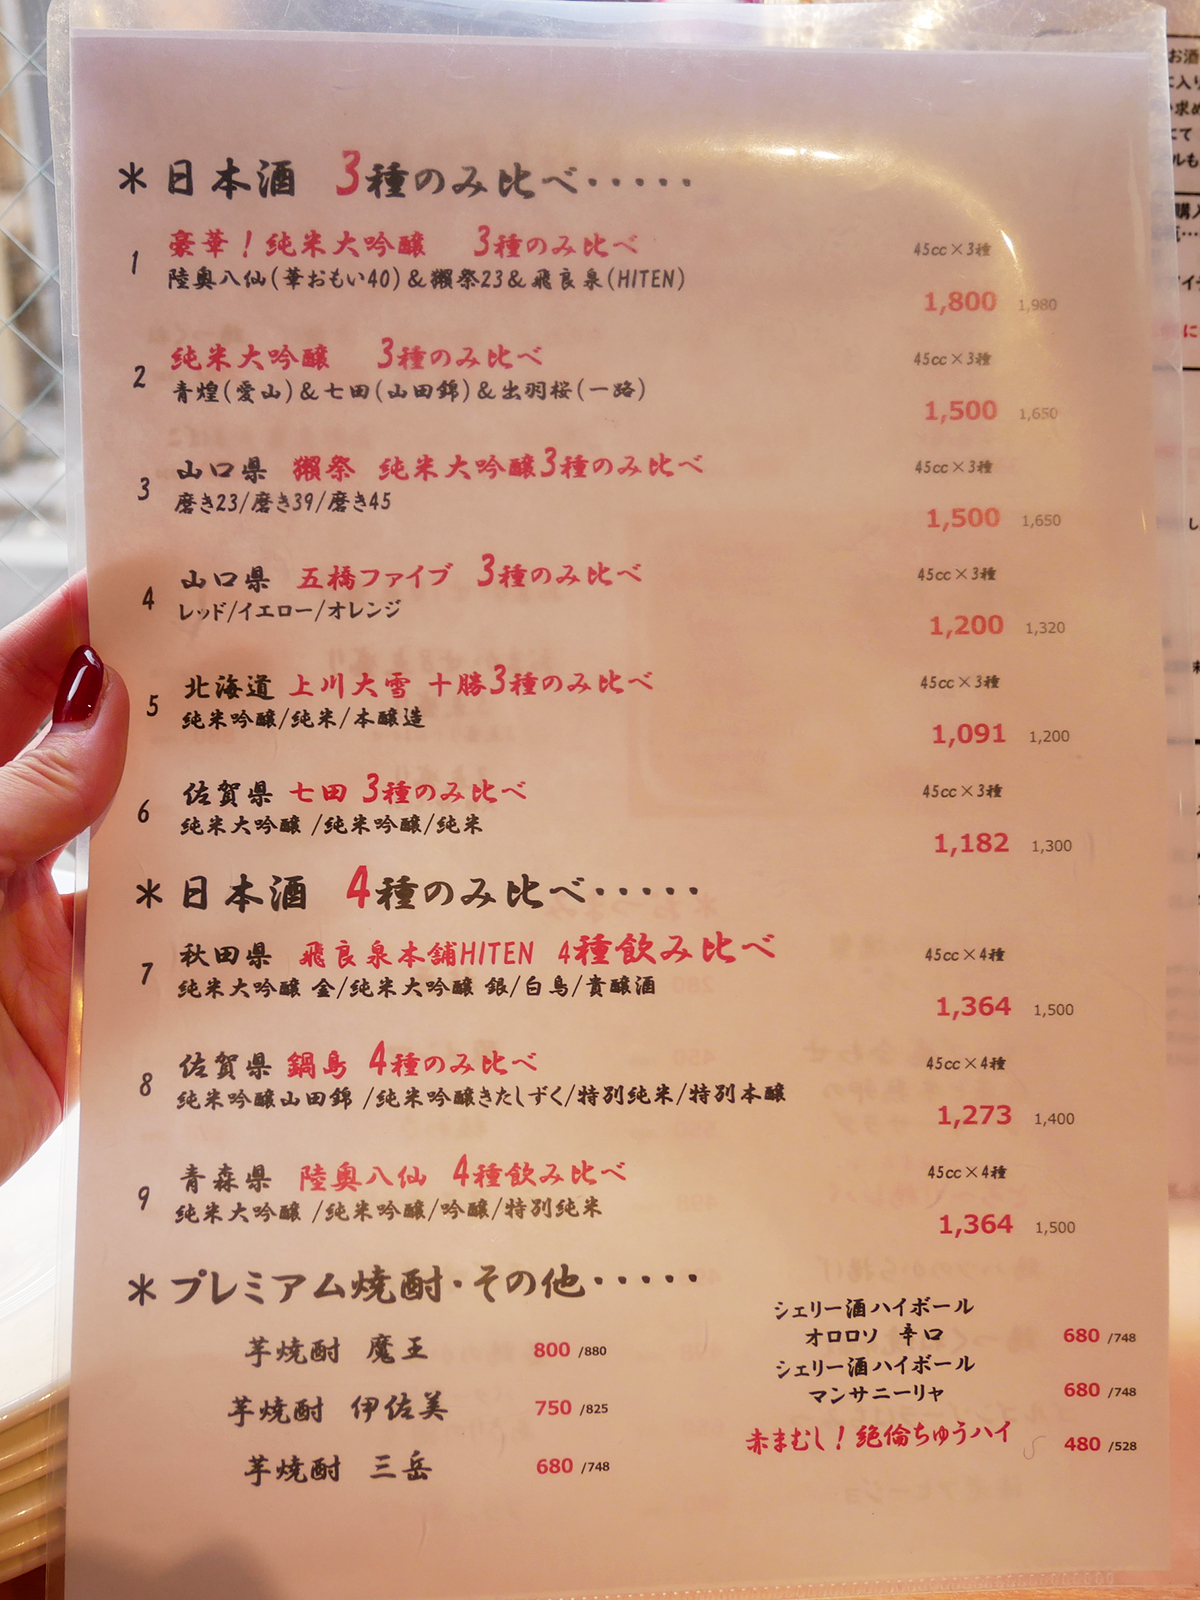 ＊日本酒 3種のみ比べ・・・・・
1 豪華！純米大吟醸 3種のみ比べ 45cc×3種
陸奥八仙(華おもい40)＆獺祭23＆飛良泉(HITEN)
1,800 1,980
2 純米大吟醸 3種のみ比べ 45cc×3種
青煌(愛山)＆七田(山田錦)＆出羽桜(一路)
1,500 1,650
3 山口県 獺祭 純米大吟醸3種のみ比べ 45cc×3種
磨き23/磨き39/磨き45
1,500 1,650
4 山口県 五橋ファイブ 3種のみ比べ 45cc×3種
レッド/イエロー/オレンジ
1,200 1,320
5 北海道 上川大雪 十勝3種のみ比べ 45cc×3種
純米吟醸/純米/本醸造
1,091 1,200
6 佐賀県 七田 3種のみ比べ 45cc×3種
純米大吟醸 /純米吟醸/純米
1,182 1,300
＊日本酒 4種のみ比べ・・・・・
7 秋田県 飛良泉本舗HITEN 4種飲み比べ 45cc×4種
純米大吟醸 金/純米大吟醸 銀/白鳥/貴醸酒
1,364 1,500
8 佐賀県 鍋島 4種のみ比べ 45cc×4種
純米吟醸山田錦 /純米吟醸きたしずく/特別純米/特別本醸
1,273 1,400
9 青森県 陸奥八仙 4種飲み比べ 45cc×4種
純米大吟醸 /純米吟醸/吟醸/特別純米
1,364 1,500
＊プレミアム焼酎・その他・・・・・
芋焼酎 魔王 800 /880
芋焼酎 伊佐美 750 /825
芋焼酎 三岳 680 /748
シェリー酒ハイボール
オロロソ 辛口 680 /748
シェリー酒ハイボール
マンサニーリャ 680 /748
赤まむし！絶倫ちゅうハイ 480 /528